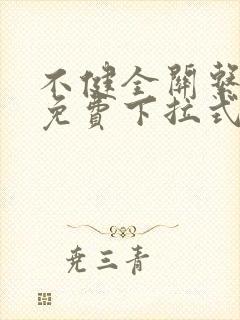 不健全關繫
免費下拉式
堯三青